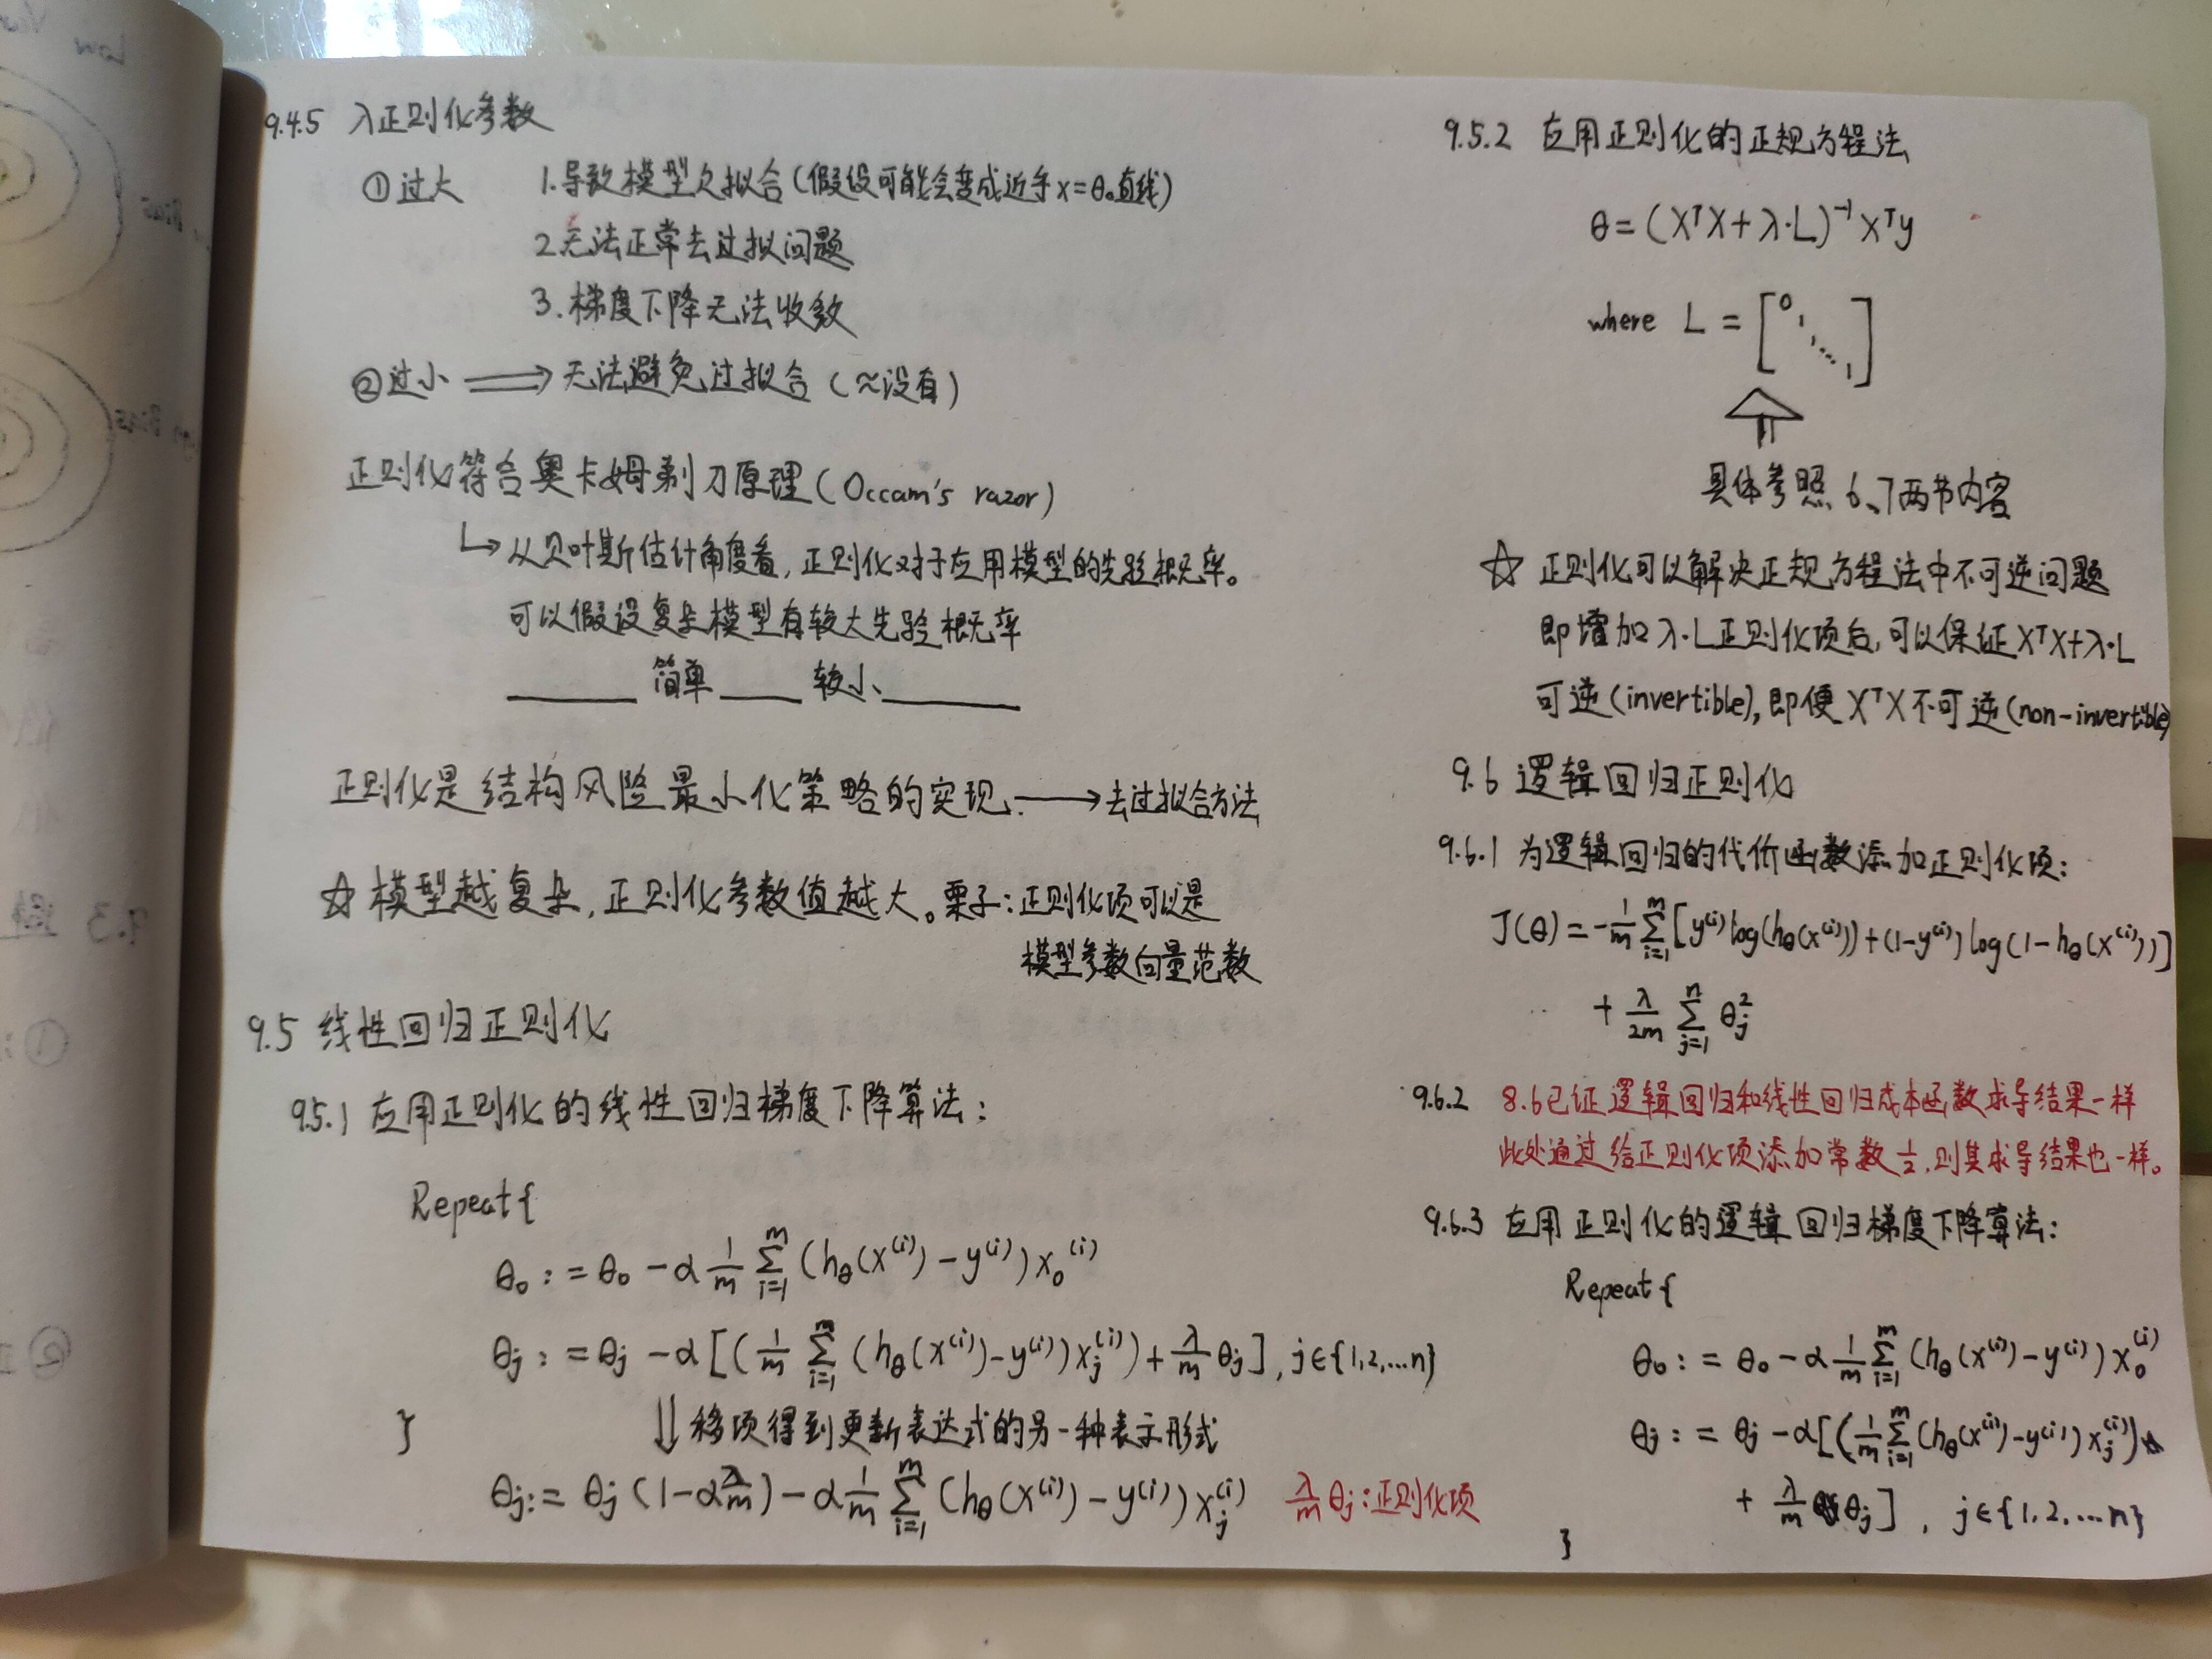 9.4.5 λ正则化参数
①过大 1.导致模型欠拟合(假设可能会变成近乎x=θ₀直线)
2.无法正常去过拟问题
3.梯度下降无法收敛
②过小 ⟹ 无法避免过拟合(≈没有)
正则化符合奥卡姆剃刀原理(Occam's razor)
↳从贝叶斯估计角度看,正则化对于应用模型的先验概率。
可以假设复杂模型有较大先验概率
______ 简单 ____ 较小 ______
正则化是结构风险最小化策略的实现. ⟶去过拟合方法
☆模型越复杂,正则化参数值越大。栗子:正则化项可以是
模型参数向量范数
9.5 线性回归正则化
9.5.1 应用正则化的线性回归梯度下降算法:
Repeat{
θ₀ := θ₀ - α 1/m Σ_{i=1}^{m} (h_θ(x^{(i)}) - y^{(i)}) x₀^{(i)}
θ_j := θ_j - α[(1/m Σ_{i=1}^{m} (h_θ(x^{(i)}) - y^{(i)}) x_j^{(i)}) + λ/m θ_j], j∈{1,2,...n}
} ⇓移项得到更新表达式的另一种表示形式
θ_j := θ_j (1-α λ/m) - α 1/m Σ_{i=1}^{m} (h_θ(x^{(i)}) - y^{(i)}) x_j^{(i)} λ/m θ_j:正则化项
9.5.2 应用正则化的正规方程法
θ = (XᵀX + λ·L)⁻¹Xᵀy
where L = [0 1 ⋱ 1]
⇑
具体参照6、7两节内容
☆ 正则化可以解决正规方程法中不可逆问题
即增加λ·L正则化项后,可以保证XᵀX+λ·L
可逆(invertible),即便XᵀX不可逆(non-invertible)
9.6 逻辑回归正则化
9.6.1 为逻辑回归的代价函数添加正则化项:
J(θ) = -1/m Σ_{i=1}^{m} [y^{(i)} log(h_θ(x^{(i)})) + (1-y^{(i)}) log(1-h_θ(x^{(i)}))]
+ λ/2m Σ_{j=1}^{n} θ_j²
9.6.2 8.6已证逻辑回归和线性回归成本函数求导结果一样
此处通过给正则化项添加常数½,则其求导结果也一样。
9.6.3 应用正则化的逻辑回归梯度下降算法:
Repeat{
θ₀ := θ₀ - α 1/m Σ_{i=1}^{m} (h_θ(x^{(i)}) - y^{(i)}) x₀^{(i)}
θ_j := θ_j - α[(1/m Σ_{i=1}^{m} (h_θ(x^{(i)}) - y^{(i)}) x_j^{(i)})
+ λ/m θ_j], j∈{1,2,...n}
}